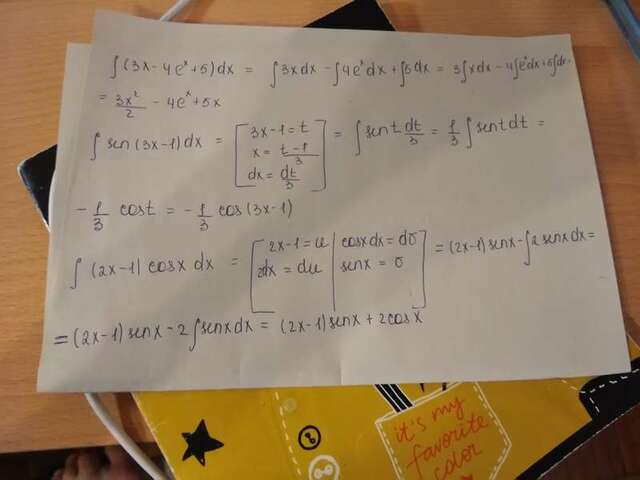 ∫(3x-4eˣ+5)dx = ∫3xdx - ∫4eˣdx + ∫5dx = 3∫xdx - 4∫eˣdx + 5∫dx =
= 3x²/2 - 4eˣ + 5x
∫sen(3x-1)dx = [3x-1=t
x = t-1/3
dx = dt/3] = ∫sent dt/3 = 1/3 ∫sentdt =
-1/3 cost = -1/3 cos(3x-1)
∫(2x-1)cosxdx = [2x-1=u | cosxdx=dσ
2dx=du | senx=σ] = (2x-1)senx-∫2senxdx=
= (2x-1)senx-2∫senxdx = (2x-1)senx+2cosx
it's my
favorite
color